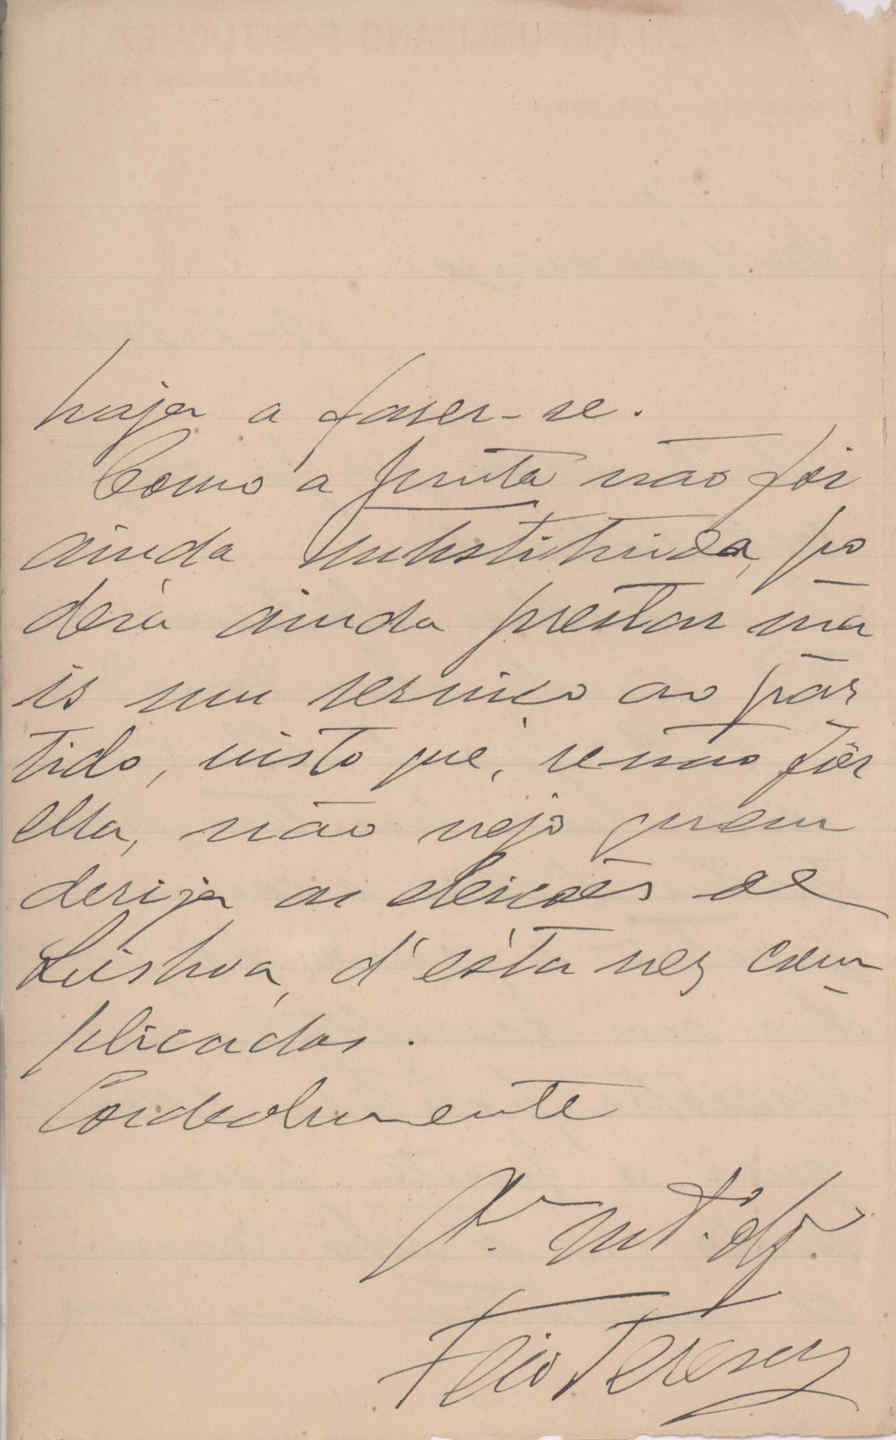 haja a faser-se.
Como a junta não foi
ainda substituida, po
derá ainda prestar ma
is um serviço ao par
tido, visto que, se não fôr
ella, não vejo quem
derija as eleições de
Lisboa, d'ésta vez com
plicadas.
Cordealmente
A.º mt.º obg.º
Feio Terenas